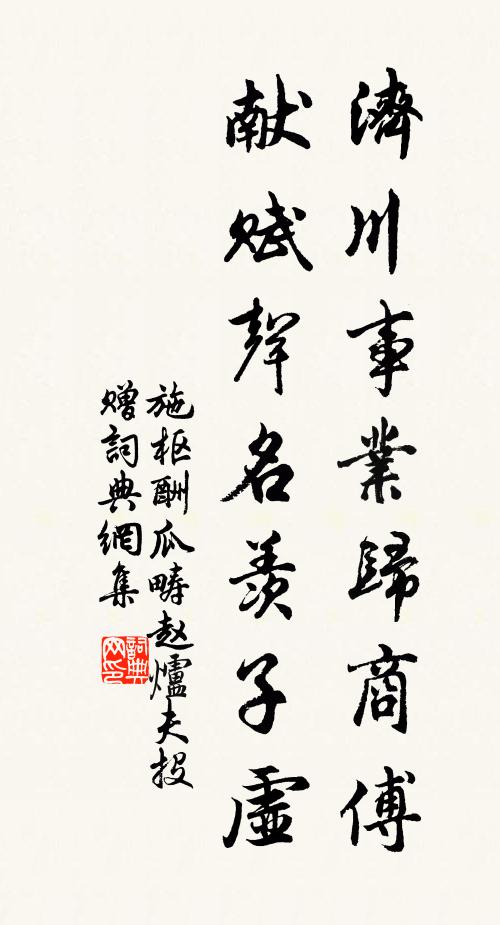 濟川事業歸商傅
献賦聲名羨子虛
施枢酬瓜疇赵爐夫投
贈詞典網集
詞典网印